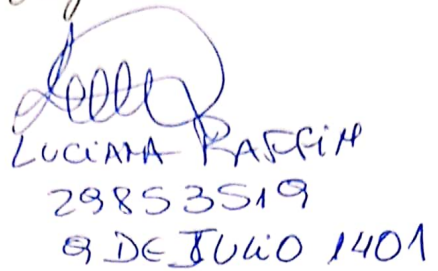 LUCIANA RAFFIN
29853519
9 DE JULIO 1401